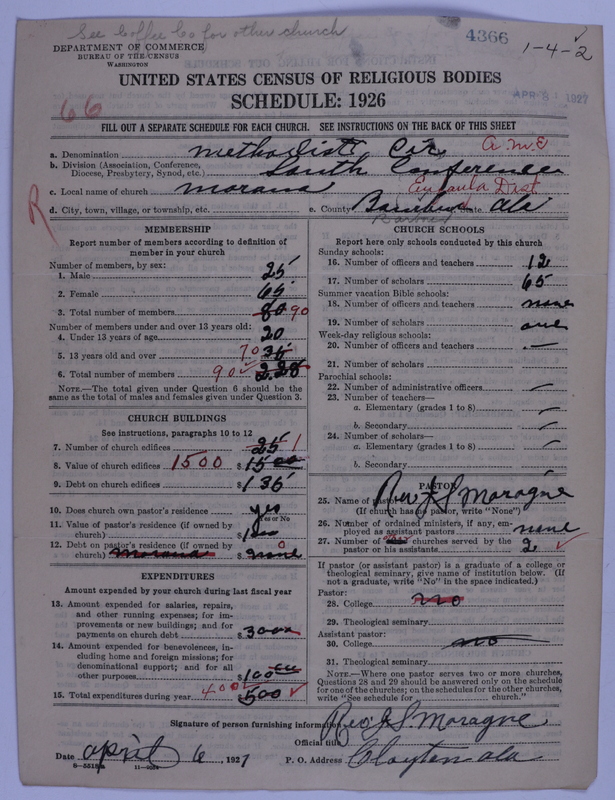 See Coffee Co for other church
4366
1-4-2
DEPARTMENT OF COMMERCE
BUREAU OF THE CENSUS
WASHINGTON
UNITED STATES CENSUS OF RELIGIOUS BODIES
SCHEDULE: 1926
APR 8 1927
66
FILL OUT A SEPARATE SCHEDULE FOR EACH CHURCH. SEE INSTRUCTIONS ON THE BACK OF THIS SHEET
a. Denomination Methodist Cir. A.M.E
b. Division (Association, Conference, Diocese, Presbytery, Synod, etc.) South Conference
c. Local name of church Morana Eufaula Dist
R
d. City, town, village, or township, etc. e. County State Ala
Barbour
MEMBERSHIP
Report number of members according to definition of member in your church
Number of members, by sex:
1. Male 25
2. Female 65
3. Total number of members 80 90
Number of members under and over 13 years old:
4. Under 13 years of age 20
5. 13 years old and over 70 35
6. Total number of members 90 2.25
NOTE.—The total given under Question 6 should be the same as the total of males and females given under Question 3.
CHURCH BUILDINGS
See instructions, paragraphs 10 to 12
7. Number of church edifices 25 1
8. Value of church edifices 1500 $ 1500
9. Debt on church edifices $ 135
10. Does church own pastor's residence yes
Yes or No
11. Value of pastor's residence (if owned by church) $
12. Debt on pastor's residence (if owned by church) Morana $ none 0
EXPENDITURES
Amount expended by your church during last fiscal year
13. Amount expended for salaries, repairs, and other running expenses; for improvements or new buildings; and for payments on church debt $ 300
14. Amount expended for benevolences, including home and foreign missions; for denominational support; and for all other purposes $ 100
15. Total expenditures during year 400 $ 500
CHURCH SCHOOLS
Report here only schools conducted by this church
Sunday schools:
16. Number of officers and teachers 12
17. Number of scholars 65
Summer vacation Bible schools:
18. Number of officers and teachers none
19. Number of scholars one
Week-day religious schools:
20. Number of officers and teachers —
21. Number of scholars
Parochial schools:
22. Number of administrative officers —
23. Number of teachers—
a. Elementary (grades 1 to 8) —
b. Secondary —
24. Number of scholars—
a. Elementary (grades 1 to 8) —
b. Secondary
PASTOR
25. Name of pastor Rev J S Moragne
(If church has no pastor, write "None")
26. Number of ordained ministers, if any, employed as assistant pastors none
27. Number of churches served by the pastor or his assistants 2
If pastor (or assistant pastor) is a graduate of a college or theological seminary, give name of institution below. (If not a graduate, write "No" in the space indicated.)
Pastor:
28. College no
29. Theological seminary
Assistant pastor:
30. College no
31. Theological seminary
NOTE.—Where one pastor serves two or more churches, Questions 28 and 29 should be answered only on the schedule for one of the churches; on the schedules for the other churches, write "See schedule for church.
Signature of person furnishing information Rev J S. Moragne
Official title
Date April 6, 1927 P. O. Address Clayton ala